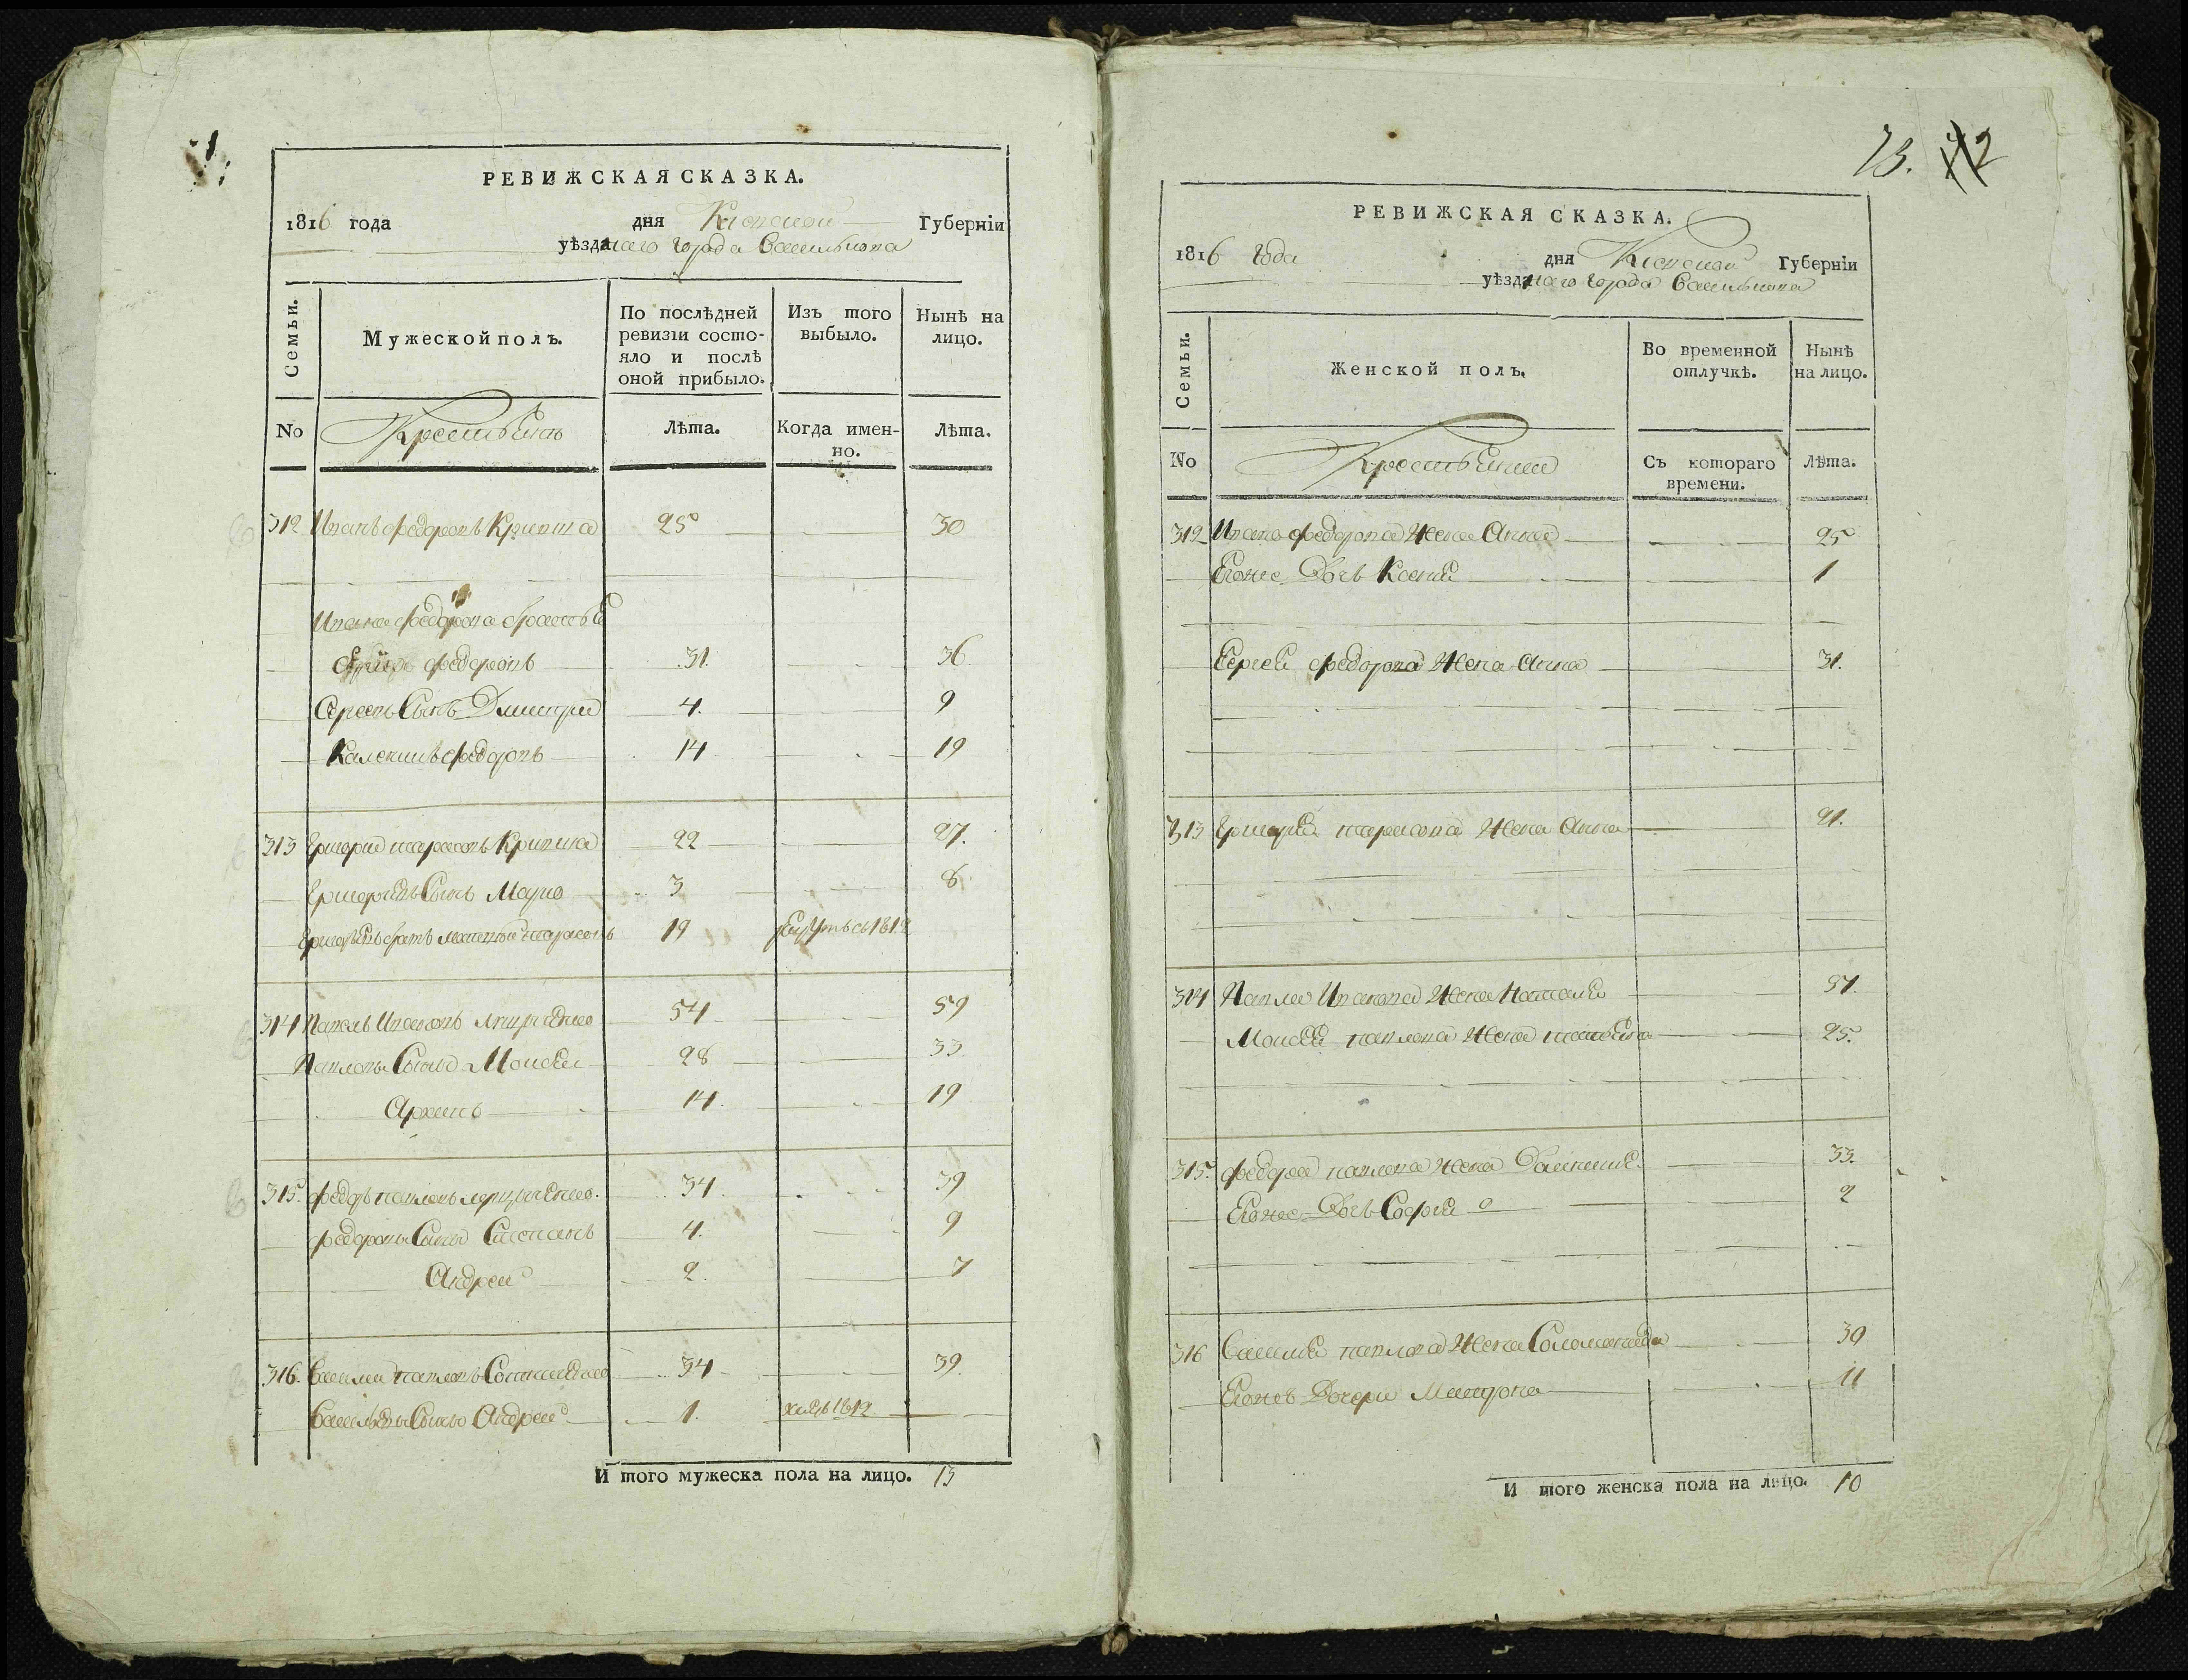 РЕВИЖСКАЯ СКАЗКА.
1816 года дня Киевской Губерніи
уѣзднаго города Василькова
Семьи. Мужеской полъ. По послѣдней ревизіи состояло и послѣ оной прибыло. Изъ того выбыло. Нынѣ на лицо.
No Крестьянъ Лѣта. Когда именно. Лѣта.
312 Иванъ Федоровъ Кривша 25 30
Ивана Федорова братья
Федоровъ 31. 36.
Сынъ Дмитрий 4. 9
Федоровъ 14 19
313 Григорий Тарасовъ Кривша 22 27.
Григорьевъ Сынъ Марко 3 8
Григорьевъ братъ Тарасовъ 19 1812
314 Павелъ Ивановъ 54 59
Павловы Сыны Моисей 28 33
Архипъ 14. 19
315. Федоръ Павловъ 34. 39
Федоровы Сыны Степанъ 4. 9
Андрей 2. 7
316. Василий Павловъ 34 39.
Васильевъ Сынъ Андрей 1. 1812
И того мужеска пола на лицо. 13
73. 42
РЕВИЖСКАЯ СКАЗКА.
1816 Года дня Киевской Губерніи
уѣзднаго города Василькова
Семьи. Женской полъ. Во временной отлучкѣ. Нынѣ на лицо.
No Крестьянки Съ котораго времени. Лѣта.
312 Ивана Федорова Жена Анна 25
Егоже Дочь Ксения 1
Сергея Федорова Жена Анна 31.
313 Григория Тарасова Жена Анна 21.
314 Павла Иванова Жена Наталия 57.
Моисея Павлова Жена Татьяна 25.
315. Федора Павлова Жена 33.
Егоже Дочь София 2
316 Василия Павлова Жена Соломанида 39
Егоже Дочери Матрона 11
И того женска пола на лицо. 10